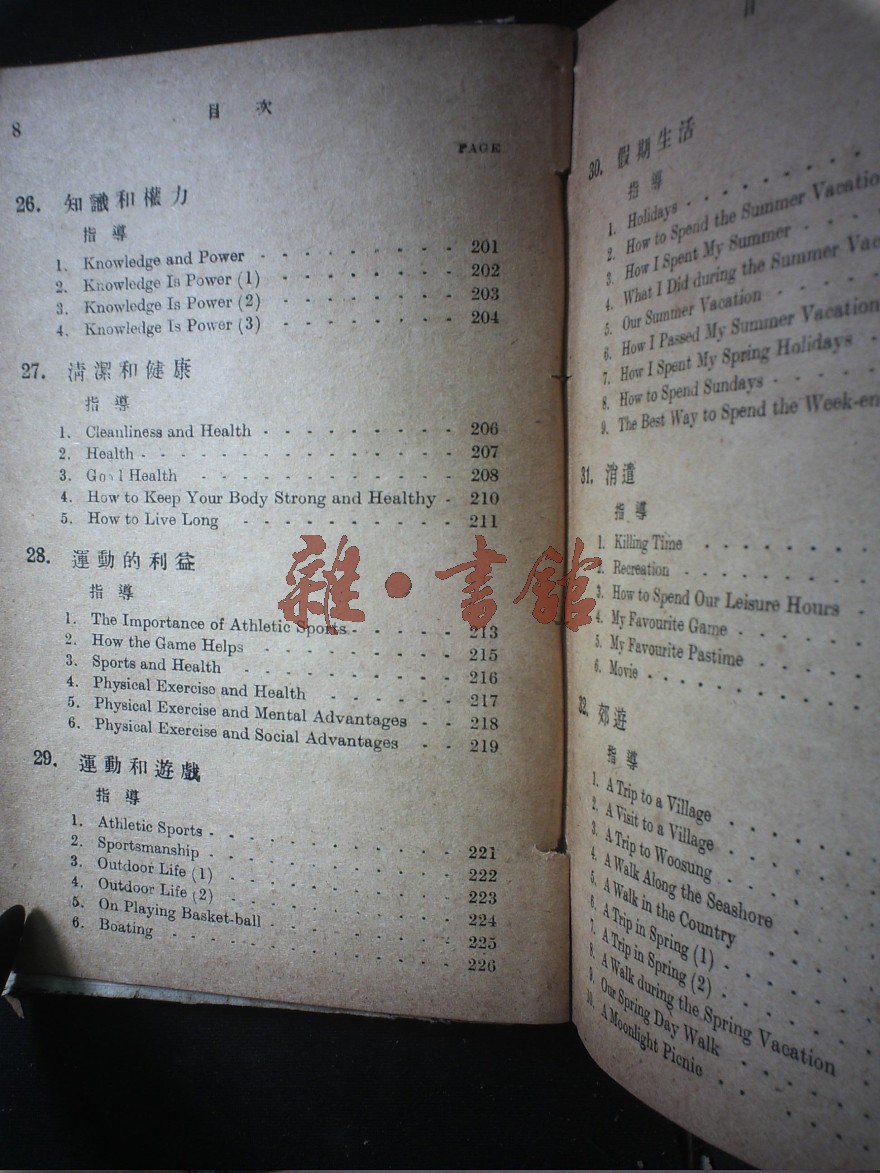 8
目 次
PAGE
26. 知識和權力
指導
1. Knowledge and Power - - - - - - - - - 201
2. Knowledge Is Power (1) - - - - - - - - 202
3. Knowledge Is Power (2) - - - - - - - - 203
4. Knowledge Is Power (3) - - - - - - - - 204
27. 清潔和健康
指導
1. Cleanliness and Health - - - - - - - - - 206
2. Health - - - - - - - - - - - - - - 207
3. Good Health - - - - - - - - - - - 208
4. How to Keep Your Body Strong and Healthy - 210
5. How to Live Long - - - - - - - - - 211
28. 運動的利益
指導
1. The Importance of Athletic Sports - - - - - - 213
2. How the Game Helps - - - - - - - - - 215
3. Sports and Health - - - - - - - - - - 216
4. Physical Exercise and Health - - - - - - 217
5. Physical Exercise and Mental Advantages - - 218
6. Physical Exercise and Social Advantages - - 219
29. 運動和遊戲
指導
1. Athletic Sports - - - - - - - - - - - 221
2. Sportsmanship - - - - - - - - - - - 222
3. Outdoor Life (1) - - - - - - - - - - 223
4. Outdoor Life (2) - - - - - - - - - - 224
5. On Playing Basket-ball - - - - - - - - 225
6. Boating - - - - - - - - - - - - 226
目
30. 假期生活
指導
1. Holidays - - - - - - - -
2. How to Spend the Summer Vacatio
3. How I Spent My Summer - - -
4. What I Did during the Summer Vac
5. Our Summer Vacation - - - -
6. How I Passed My Summer Vacation
7. How I Spent My Spring Holidays -
8. How to Spend Sundays - - - - -
9. The Best Way to Spend the Week-en
31. 消遣
指導
1. Killing Time - - - - - - -
2. Recreation - - - - - - - -
3. How to Spend Our Leisure Hours -
4. My Favourite Game - - - - -
5. My Favourite Pastime - - - -
6. Movie - - - - - - - - -
32. 郊遊
指導
1. A Trip to a Village - - - - -
2. A Visit to a Village - - - - -
3. A Trip to Woosung - - - - -
4. A Walk Along the Seashore - - -
5. A Walk in the Country - - - -
6. A Trip in Spring (1) - - - - -
7. A Trip in Spring (2) - - - - -
8. A Walk during the Spring Vacation
9. Our Spring Day Walk - - - -
10. A Moonlight Picnic - - - - -
雜·書館